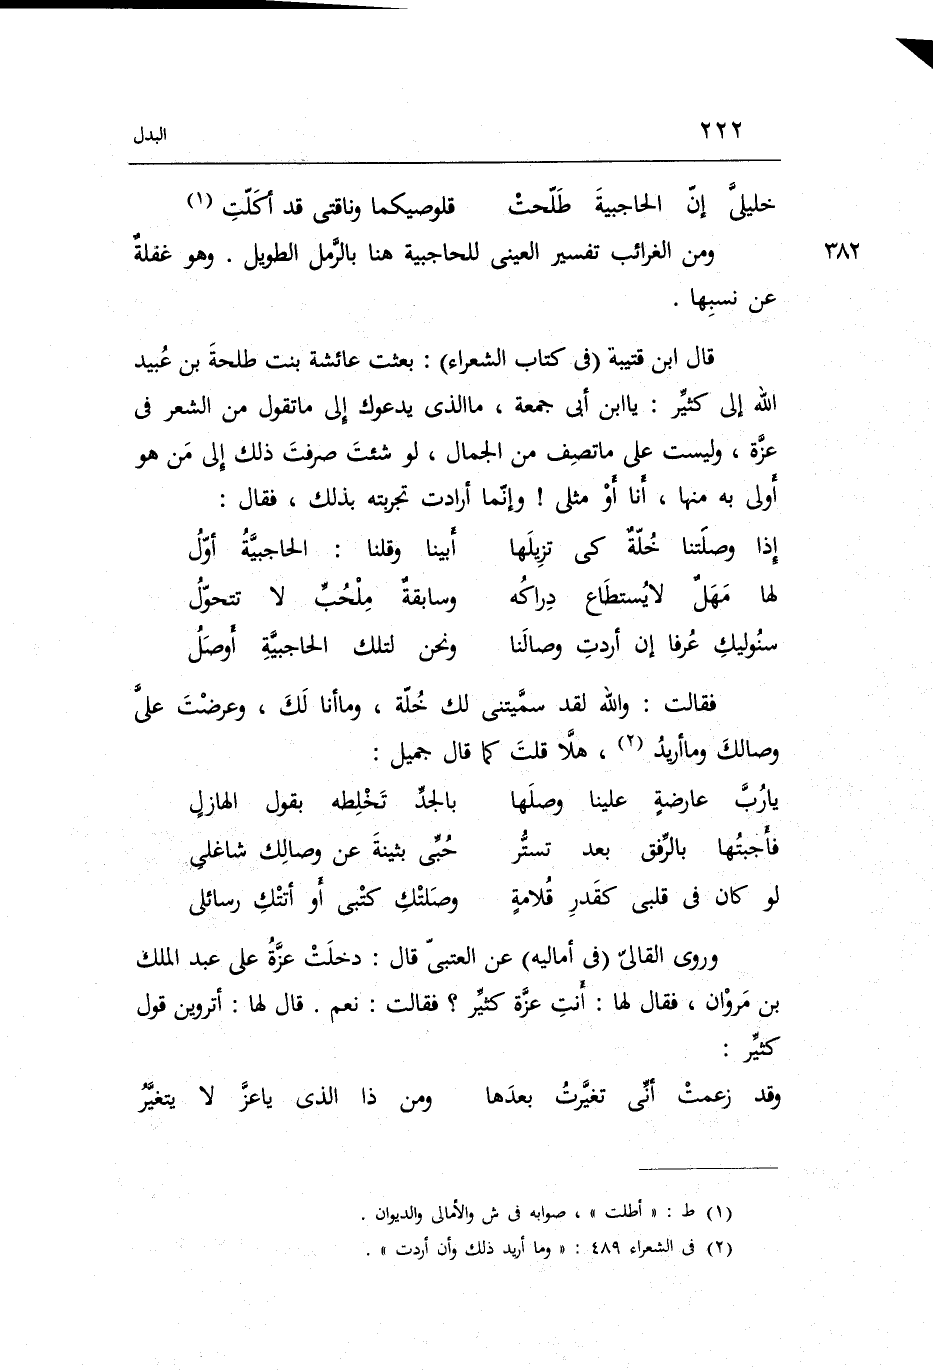 ٢٢٢ البدل
خليليَّ إنّ الحاجبيةَ طَلّحتْ قلوصيكما وناقتى قد أكَلّتِ (١)
٣٨٢ ومن الغرائب تفسير العينى للحاجبية هنا بالرَّمل الطويل . وهو غفلةٌ
عن نسبِها .
قال ابن قتيبة (فى كتاب الشعراء) : بعثت عائشة بنت طلحةَ بن عُبيد
الله إلى كثيِّر : ياابن أبى جمعة ، ماالذى يدعوك إلى ماتقول من الشعر فى
عزَّة ، وليست على ماتصِف من الجمال ، لو شئتَ صرفتَ ذلك إلى مَن هو
أولى به منها ، أنا أوْ مثلى ! وإنّما أرادت تجربته بذلك ، فقال :
إذا وصلَتنا خُلّةٌ كى تزيلَها أبينا وقلنا : الحاجبيَّةُ أوّلُ
لها مَهَلٌ لايُستطَاع دِراكُه وسابقةٌ مِلْحُبِّ لا تتحوّلُ
سنُوليكِ عُرفا إن أردتِ وصالَنا ونحن لتلك الحاجبيَّةِ أوصَلُ
فقالت : والله لقد سمَّيتنى لك خُلّة ، وماأنا لَكَ ، وعرضْتَ علىَّ
وصالكَ وماأريدُ (٢) ، هلَّا قلتَ كما قال جميل :
يارُبَّ عارضةٍ علينا وصلَها بالجدِّ تَخْلِطه بقول الهازلِ
فأجبتُها بالرِّفق بعد تستُّر حُبِّى بثينةَ عن وصالِك شاغلىِ
لو كان فى قلبى كقَدرِ قُلامةٍ وصَلتْكِ كتْبى أو أتتْكِ رسائلى
وروى القالىّ (فى أماليه) عن العتبىّ قال : دخلَتْ عزَّةُ على عبد الملك
بن مَروْان ، فقال لها : أنتِ عزَّة كثيِّر ؟ فقالت : نعم . قال لها : أتروين قول
كثيِّر :
وقد زعمتْ أنِّى تغيَّرتُ بعدَها ومن ذا الذى ياعزَّ لا يتغيَّرُ
(١) ط : « أطلت » ، صوابه فى ش والأمالى والديوان .
(٢) فى الشعراء ٤٨٩ : « وما أريد ذلك وأن أردت » .